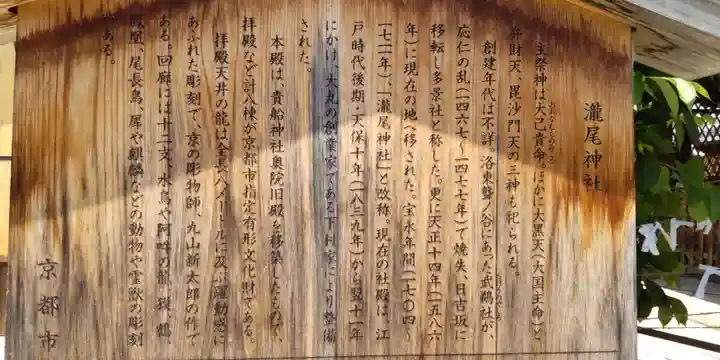 瀧尾神社
主祭神は大己貴命、ほかに大黒天(大国主命)と
弁財天、毘沙門天の三神も祀られる。
創建年代は不詳。洛東鷲ヶ谷にあった武鵜社が、
応仁の乱(一四六七~一四七七年)で焼失、日吉坂に
移転し多景社と称した。更に天正十四年(一五八六
年)に現在の地へ移された。宝永年間(一七〇四~
一七一一年)、「瀧尾神社」と改称。現在の社殿は、江
戸時代後期・天保十年(一八三九年)から翌十一年
にかけ、大丸の創業家である下村家により整備
された。
本殿は、貴船神社奥院旧殿を移築したもので、
拝殿など計八棟が京都市指定有形文化財である。
拝殿天井の龍は、全長八メートルに及ぶ躍動感に
あふれた彫刻で、京の彫物師、九山新太郎の作で
ある。回廊には十二支、水鳥や阿吽の龍、猿、鶴、
鳳凰、尾長鳥、犀や麒麟などの動物や霊獣の彫刻
がある。
京都市